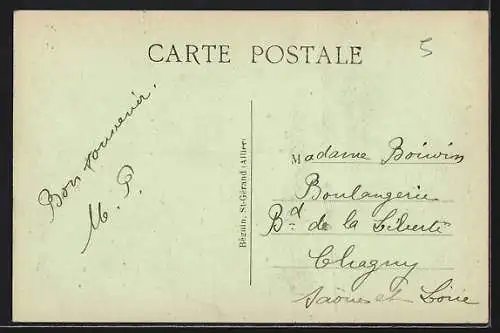 CARTE POSTALE
5
Bon souvenir.
M. P.
Béguin, St-Gérand (Allier)
Madame Boivin
Boulangerie
Bd de la Liberté
Chagny
Saône et Loire